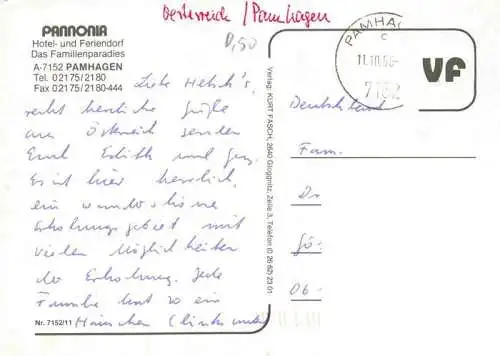 Oesterreich / Pamhagen
PANNONIA
Hotel- und Feriendorf
Das Familienparadies
A-7152 PAMHAGEN
Tel. 02175/2180
Fax 02175/2180-444
0,50
PAMHAG
c
11.10.96
7152
VF
Liebe
recht herzliche Grüße
aus Österreich senden
Euch Edith und
Es ist hier herrlich,
ein wunderschönes
Erholungsgebiet mit
vielen Möglichkeiten
der Erholung. Jede
Familie hat so ein
Häuschen (links
Nr. 7152/11
Verlag: KURT FASCH, 2640 Gloggnitz, Zeile 3, Telefon (0 26 62) 23 01
Deutschland
Fam.
Dr
Gö-
06-